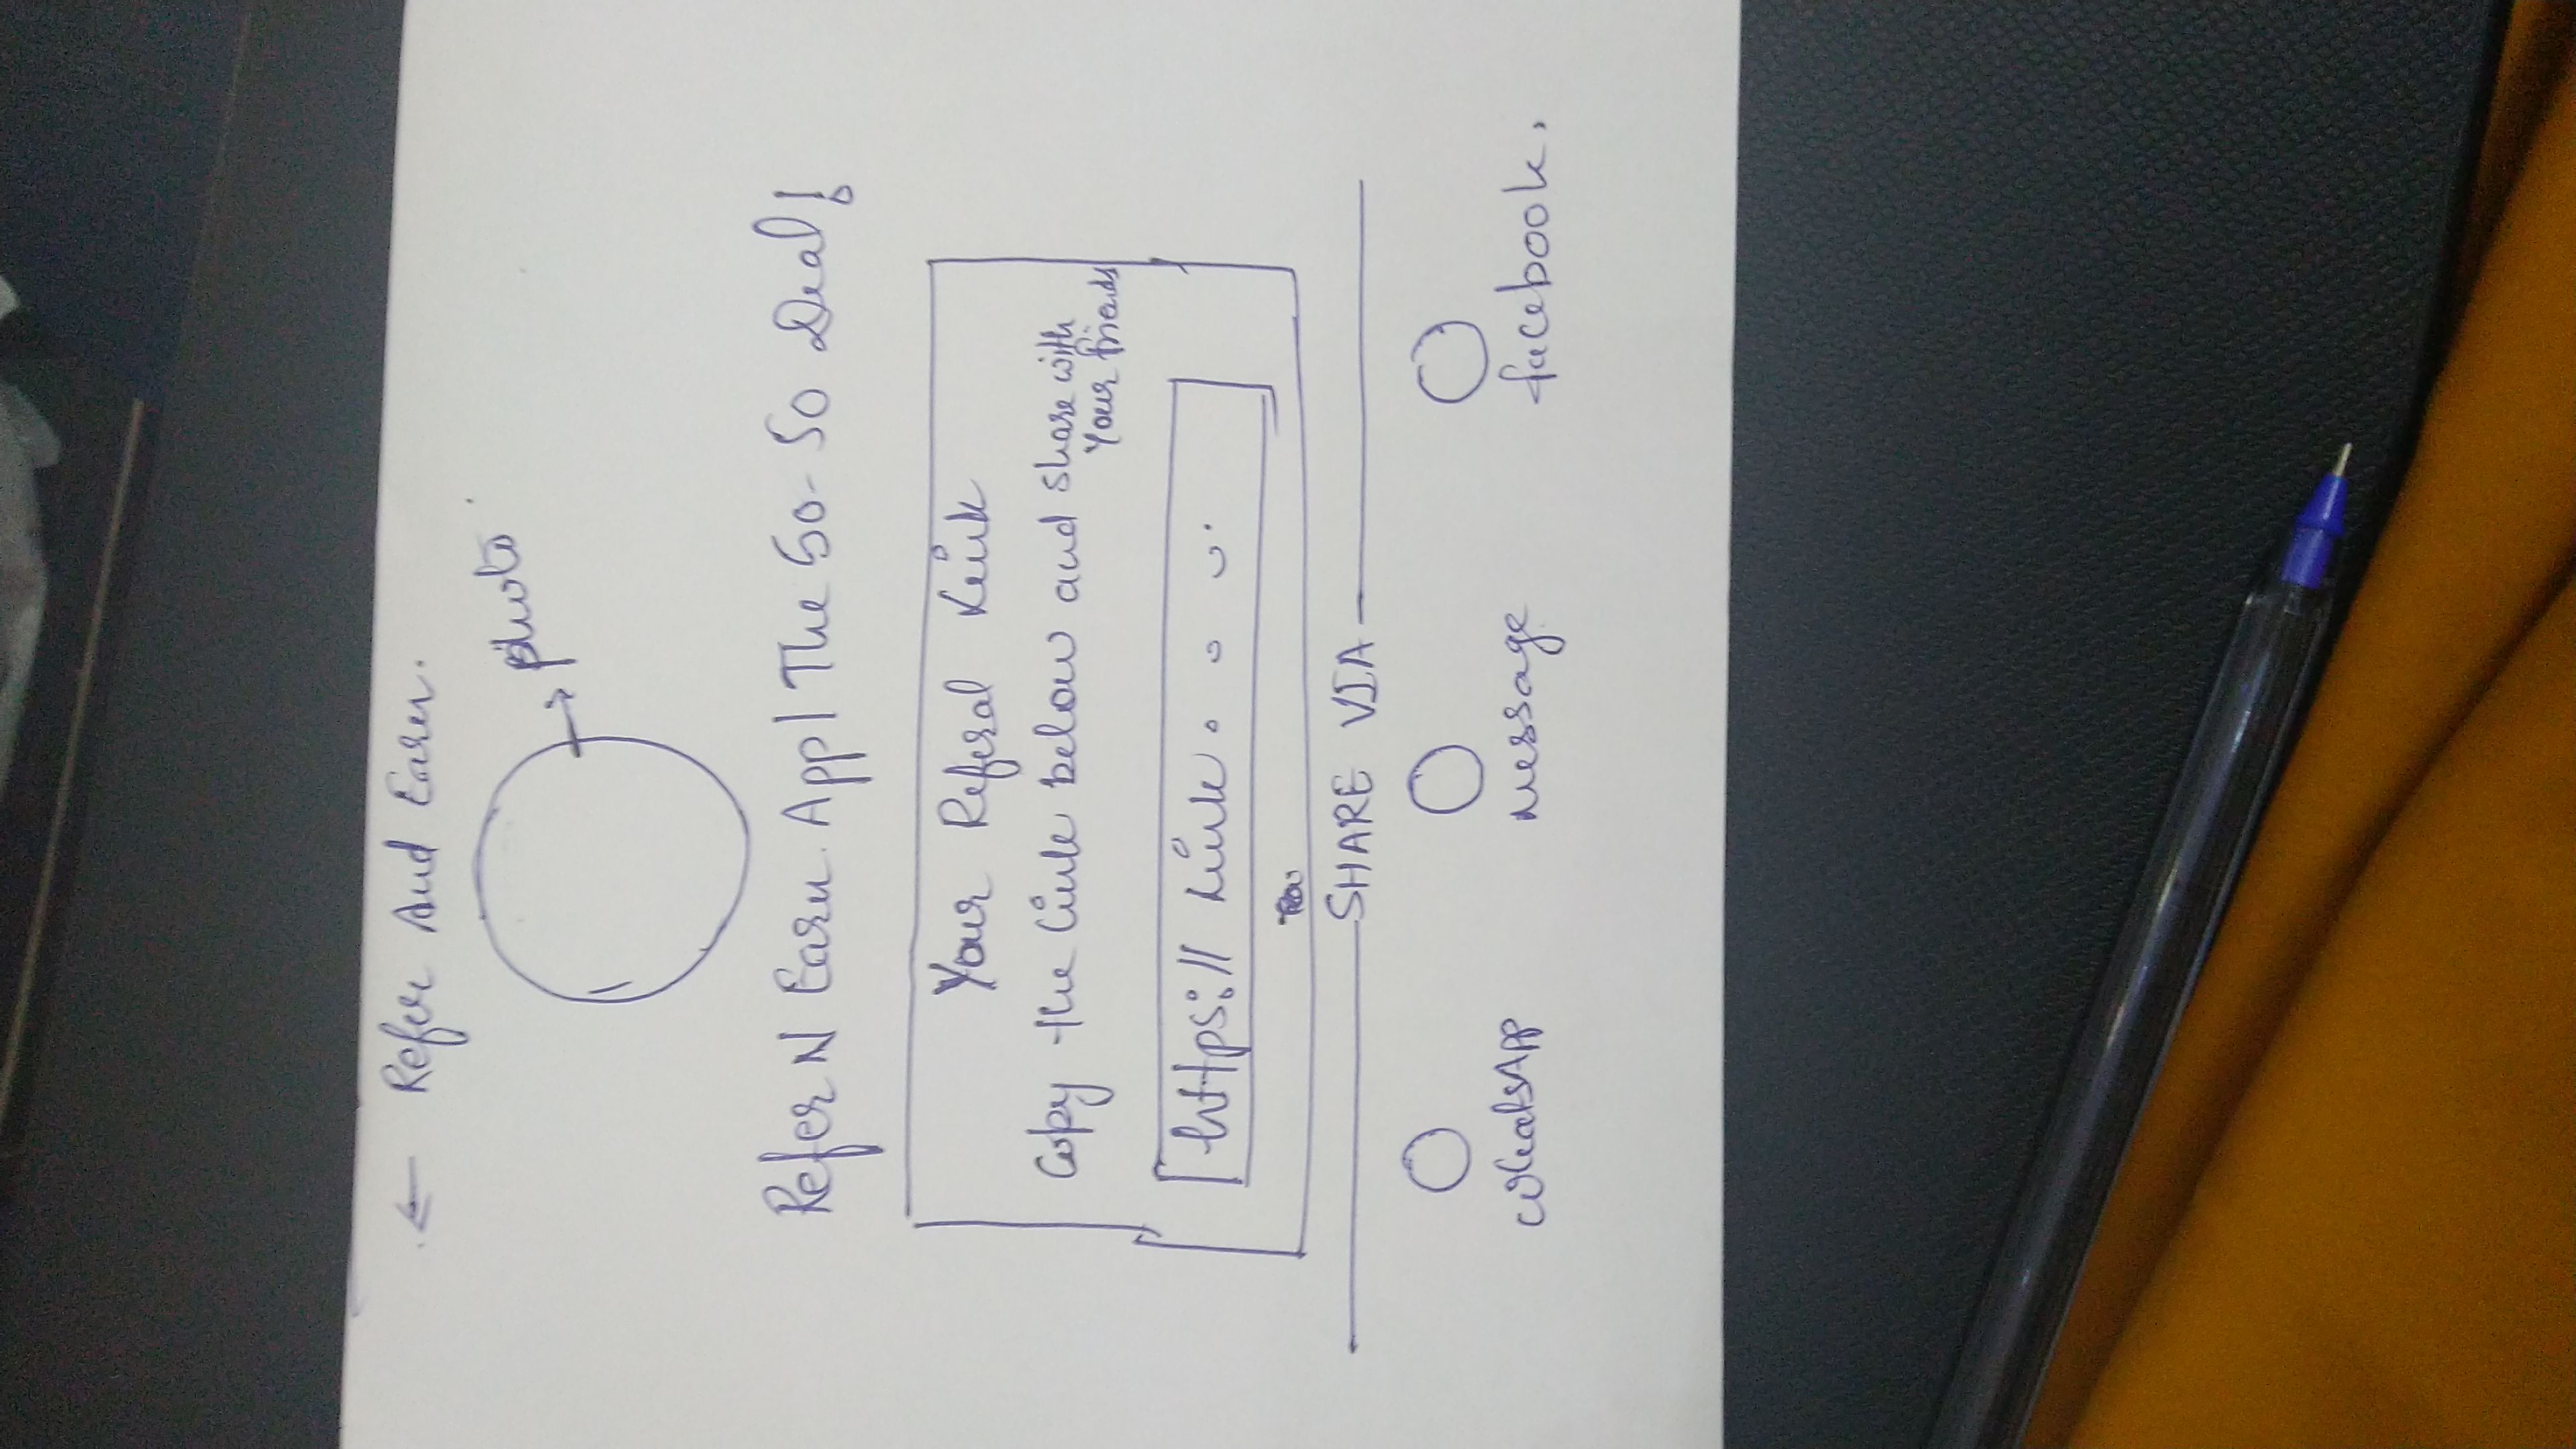 ← Refer And Earn.
photo
Refer N Earn App| The 50-50 Deal!
Your Referal Link
Copy the link below and share with
Your friends
https:// Link. . . .
SHARE VIA
WhatsApp Message facebook.